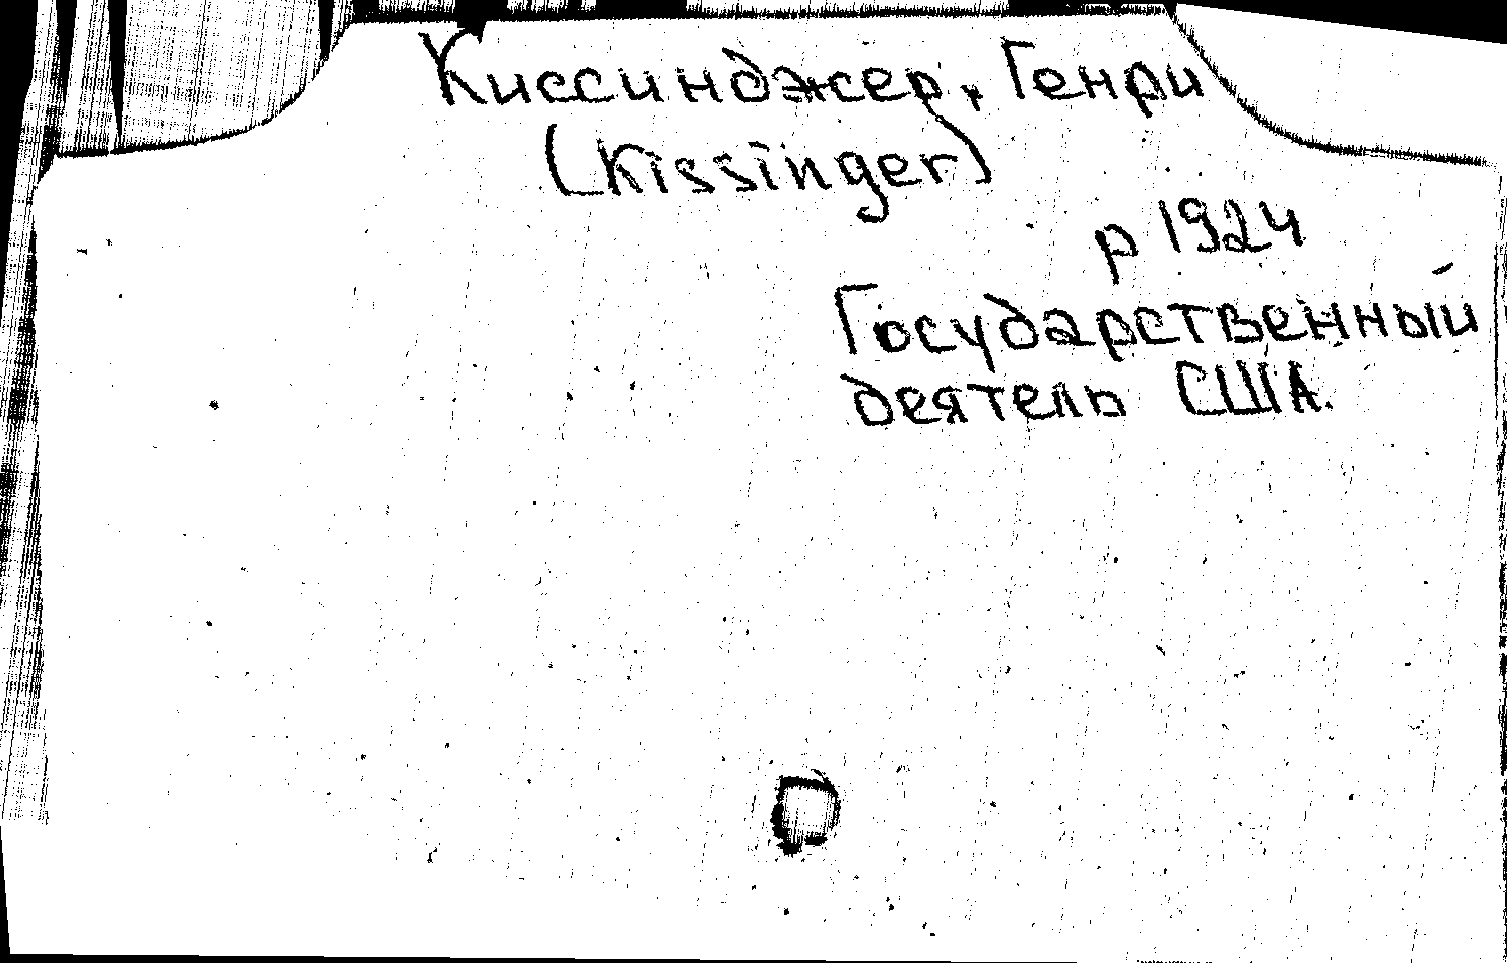 Киссинджер, Генри
(Kissinger)
р 1924
Государственный
деятель США.